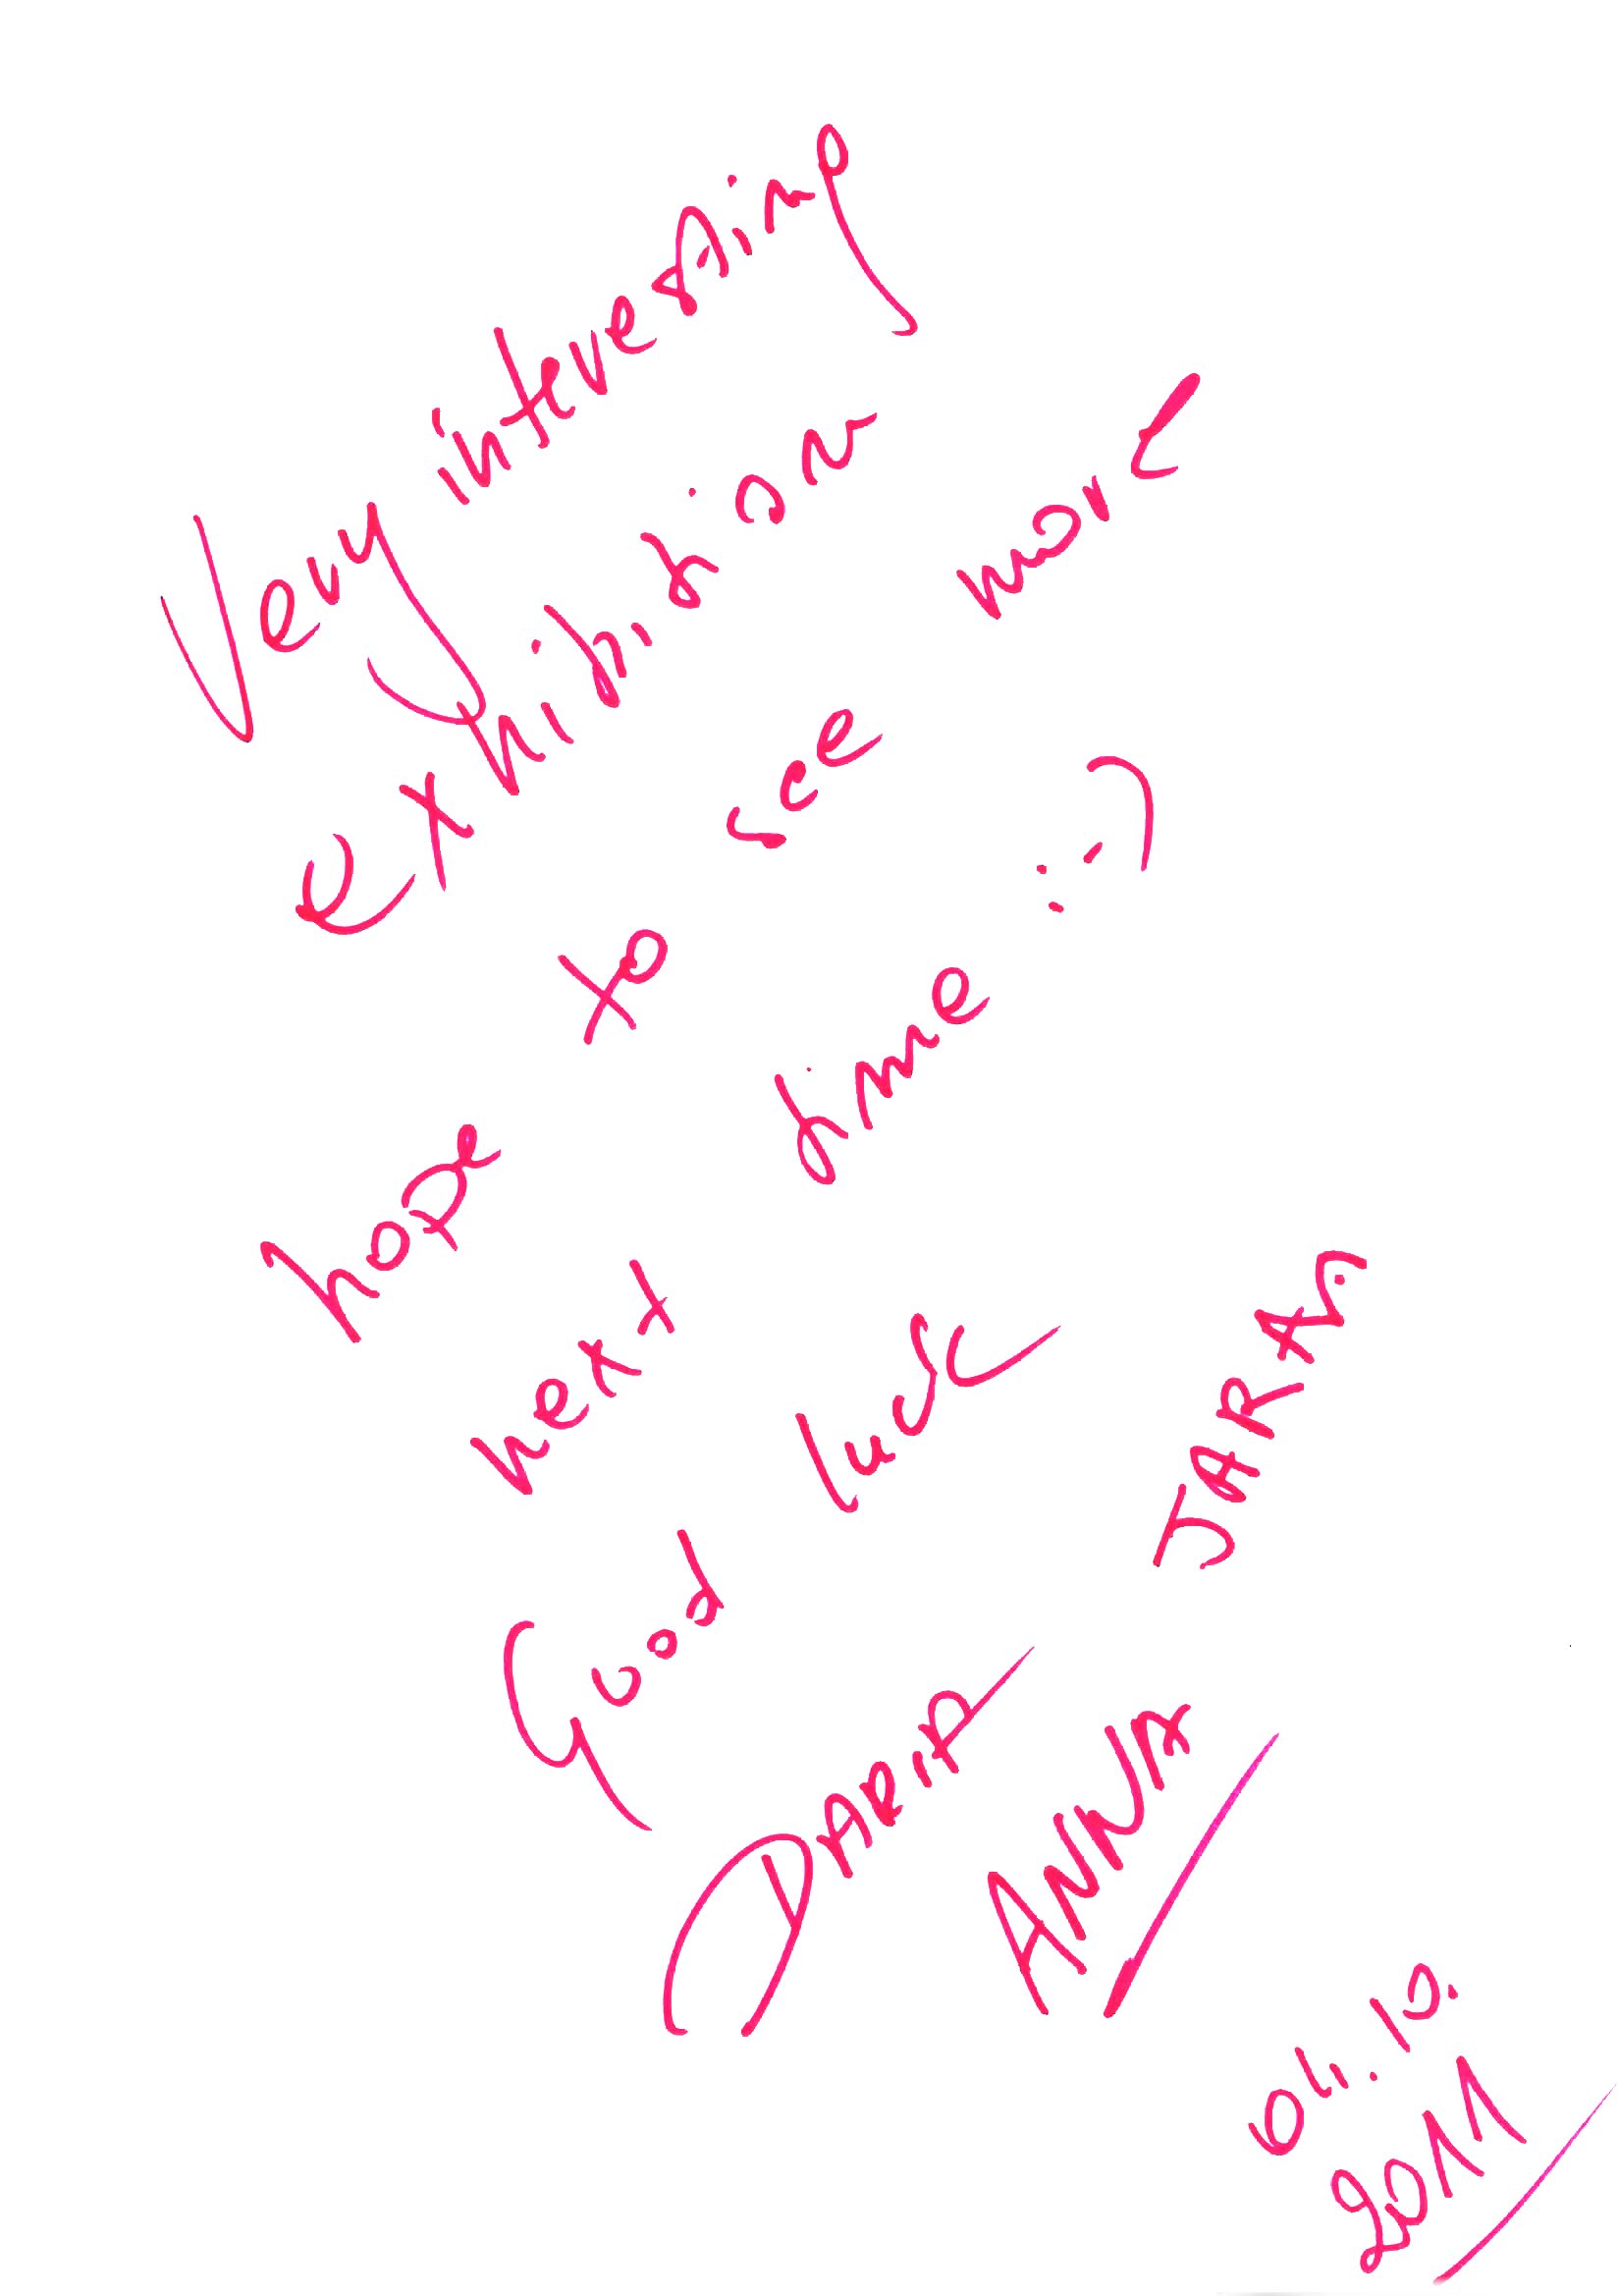 Very interesting
exhibition
hope to see more
next time :-)
Good luck
DARIA
ANNA
04.10.
2011